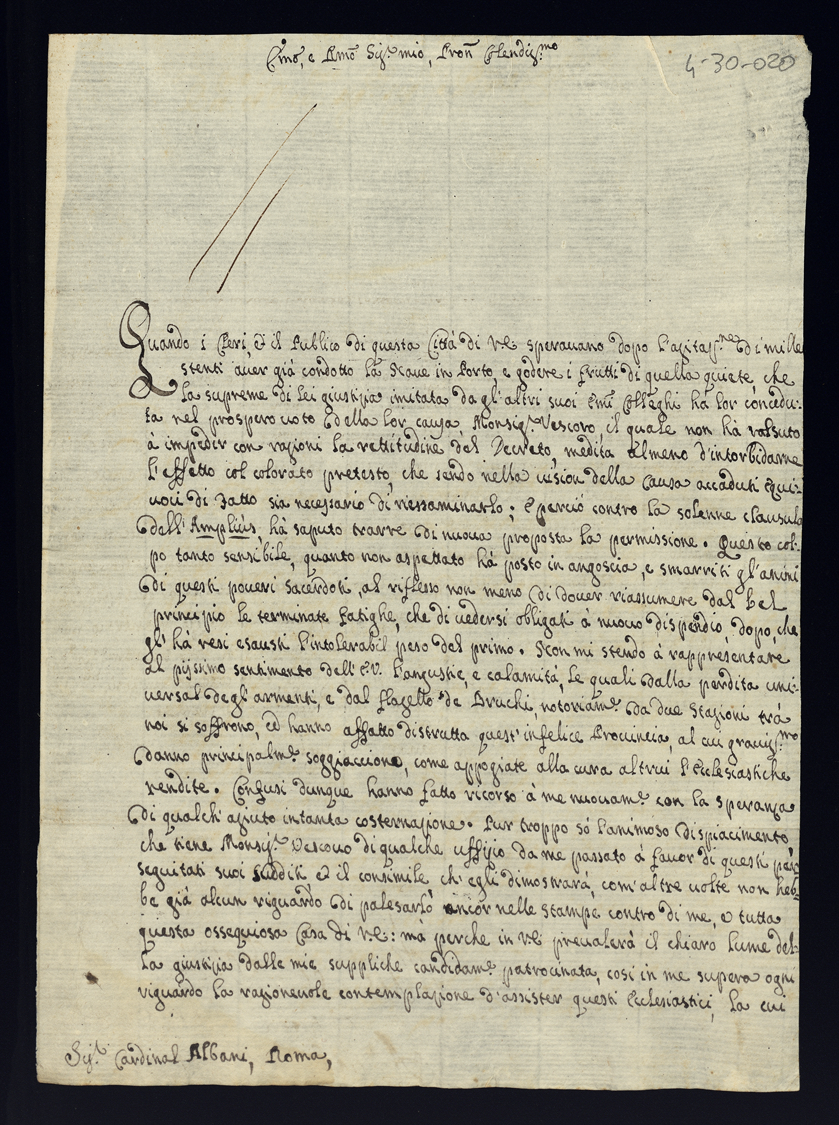 Emo, e Rmo Sig.r mio, Pron Colendis.mo
4-30-020
Quando i Cleri, et il Publico di questa Città di V.E. sperauano dopo l'agitaz.ne di mille
stenti auer già condotto la Naue in Porto e godere i frutti di quella quiete, che
la suprema di lei giustizia imitata da gl'altri suoi Emi Colleghi hà lor concedu-
ta nel prospero uoto della lor causa, Monsig.r Vescovo il quale non hà valsuto
à impedir con ragioni la rettitudine del Decreto, medita almeno d'intorbidarne
l'effetto col colorato pretesto, che sendo nella uision della causa accaduti equi-
uoci di Fatto sia necessario di riessaminarlo; e perciò contro la solenne clausula
dell'Ampliùs, hà saputo trarre di nuoua proposta la permissione. Questo col-
po tanto sensibile, quanto non aspettato hà posto in angoscia, e smarriti gl'animi
di questi poueri sacerdoti, al riflesso non meno di douer riassumere dal bel
principio le terminate fatighe, che di uedersi obligati à nuouo dispendio, dopo che
gl'hà resi esausti l'intolerabil peso del primo. Non mi stendo à rappresentare
al pijssimo sentimento dell'E.V. l'angustie, e calamità, le quali dalla perdita uni-
uersal degl'armenti, e dal flagello de Bruchi, notoriam.e da due stagioni trà
noi si soffrono, ed hanno affatto distrutta quest'infelice Prouincia, al cui grauis.mo
danno principalm.e soggiacciono, come appogiate alla cura altrui l'Ecclesiastiche
rendite. Confusi dunque hanno fatto ricorso à me nuouam.e con la speranza
di qualch'aiuto in tanta costernazione. Pur troppo sò l'animoso dispiacimento,
che tiene Monsig.r Vescouo di qualche uffizio da me passato à fauor di questi per-
seguitati suoi sudditi et il consimile ch'egli dimostrarà, com'altre uolte non heb-
be già alcun riguardo di palesarlo ancor nelle stampe contro di me, e tutta
questa ossequiosa Casa di V.E.: ma perche in V.E. preualerà il chiaro lume del-
la giustizia dalle mie suppliche candidam.e patrocinata, così in me supera ogni
riguardo la ragioneuole contemplazione d'assister questi Ecclesiastici, la cui
Sig.r Cardinal Albani, Roma,